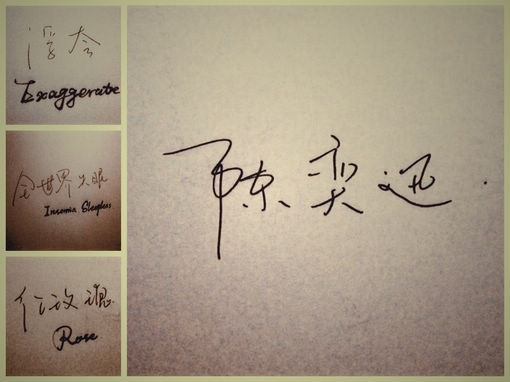 浮夸
Exaggerate
全世界失眠
Insomia Sleepless
红玫瑰
Rose
陈奕迅